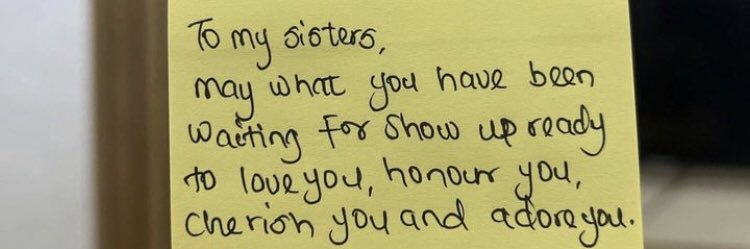 To my sisters,
may what you have been
waiting for show up ready
to love you, honour you,
cherish you and adore you.